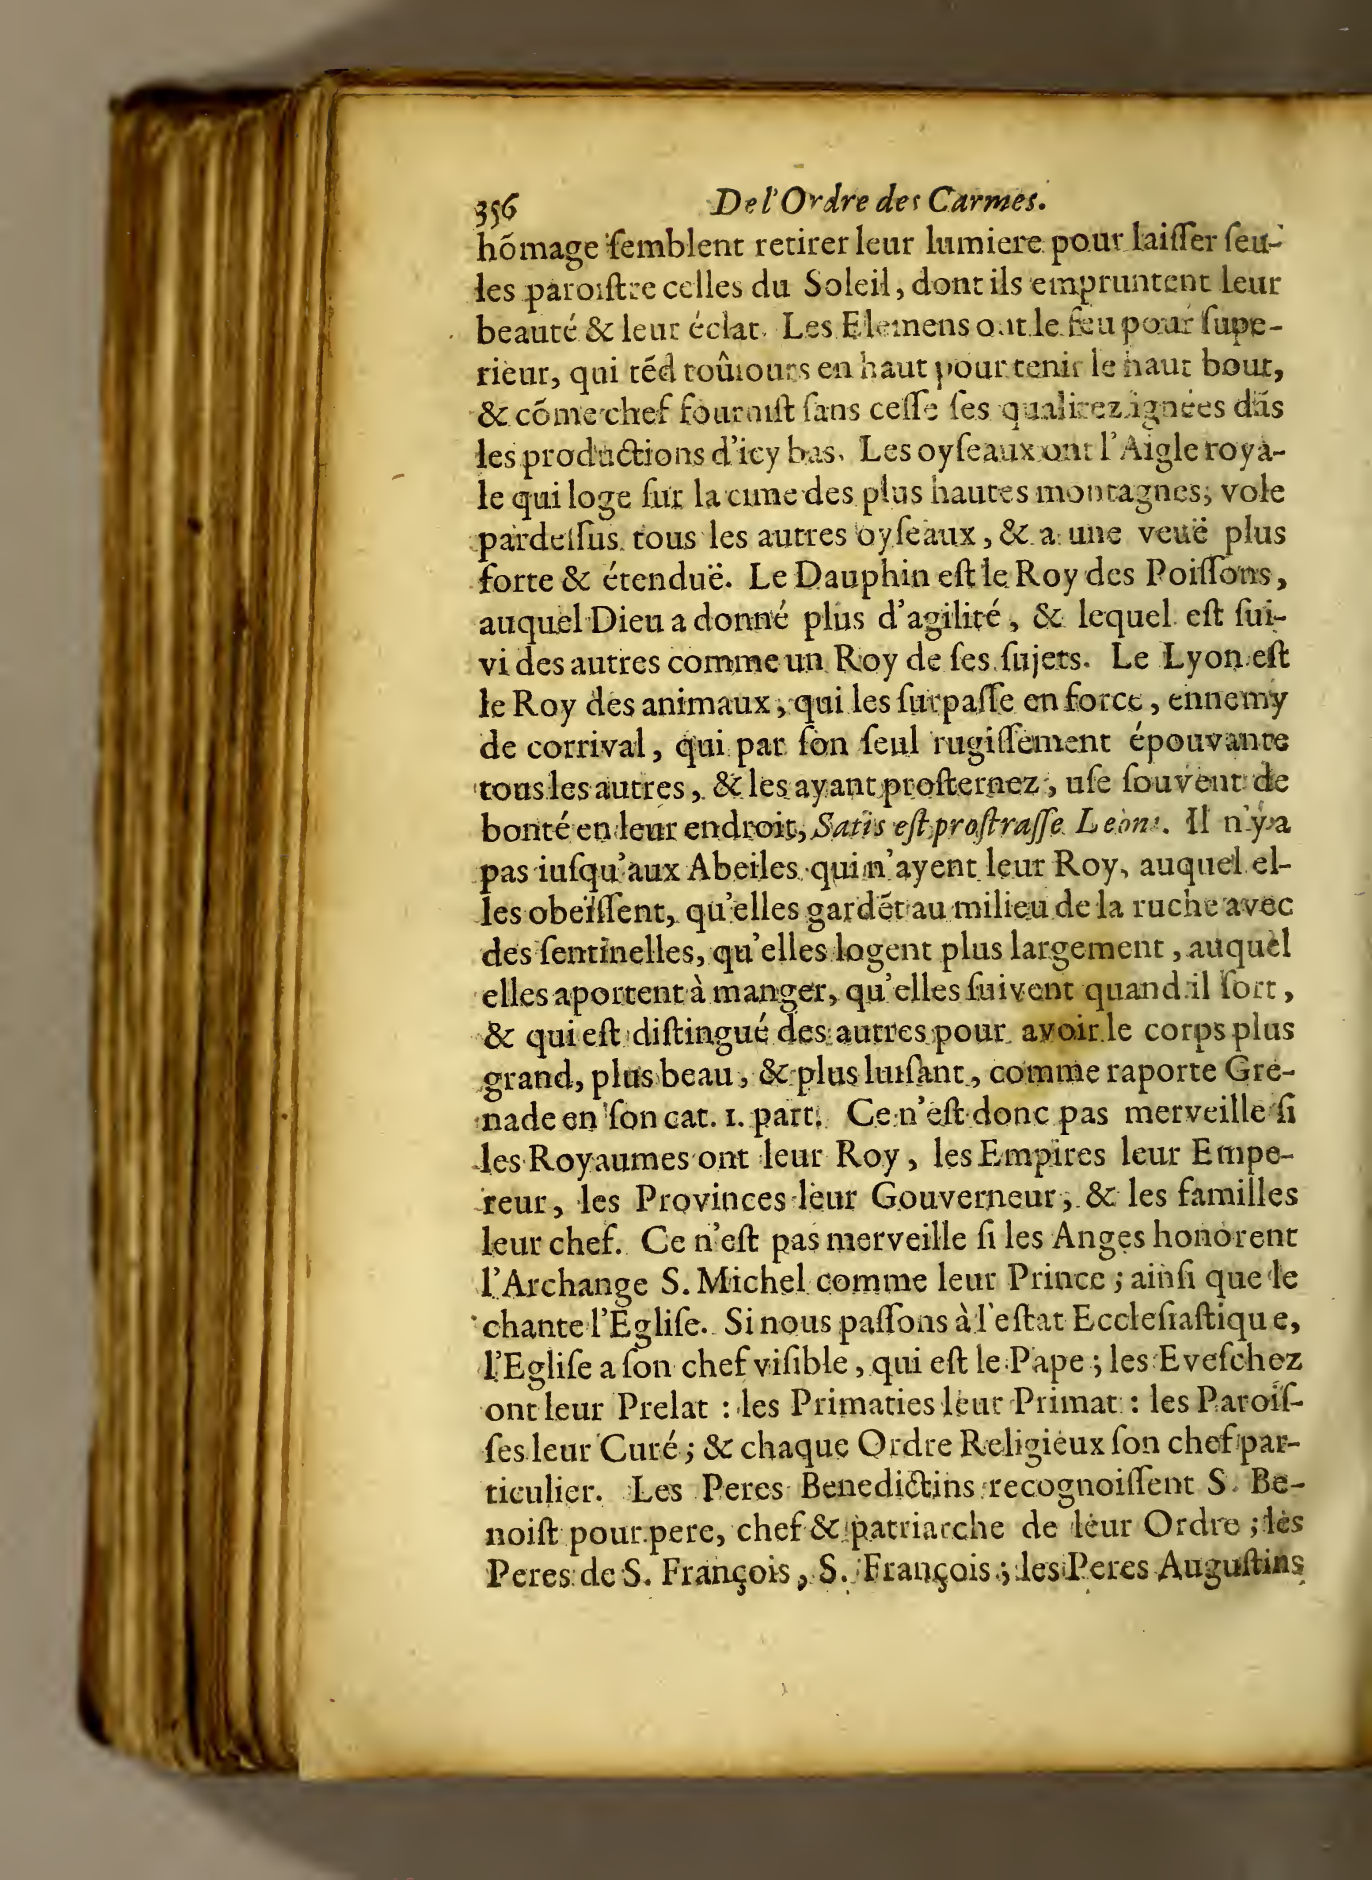 356 De l'Ordre des Carmes.
hõmage ſemblent retirer leur lumiere pour laiſſer ſeu-
les paroiſtre celles du Soleil, dont ils empruntent leur
beauté & leur éclat. Les Elemens ont le feu pour ſupe-
rieur, qui tẽd toûiours en haut pour tenir le haut bout,
& cõme chef fourniſt ſans ceſſe ſes qualitez ignées dãs
les productions d'icy bas. Les oyſeaux ont l'Aigle roya-
le qui loge ſur la cime des plus hautes montagnes, vole
pardeſſus tous les autres oyſeaux, & a une veuë plus
forte & étenduë. Le Dauphin eſt le Roy des Poiſſons,
auquel Dieu a donné plus d'agilité, & lequel eſt ſui-
vi des autres comme un Roy de ſes ſujets. Le Lyon eſt
le Roy des animaux, qui les ſurpaſſe en force, ennemy
de corrival, qui par ſon ſeul rugiſſement épouvante
tous les autres, & les ayant proſternez, uſe ſouvent de
bonté en leur endroit, Satis eſt proſtraſſe Leoni. Il n'y a
pas iuſqu'aux Abeiles qui n'ayent leur Roy, auquel el-
les obeïſſent, qu'elles gardẽt au milieu de la ruche avec
des ſentinelles, qu'elles logent plus largement, auquel
elles aportent à manger, qu'elles ſuivent quand il ſort,
& qui eſt diſtingué des autres pour avoir le corps plus
grand, plus beau, & plus luiſant, comme raporte Gre-
nade en ſon cat. 1. part. Ce n'eſt donc pas merveille ſi
les Royaumes ont leur Roy, les Empires leur Empe-
reur, les Provinces leur Gouverneur, & les familles
leur chef. Ce n'eſt pas merveille ſi les Anges honorent
l'Archange S. Michel comme leur Prince ; ainſi que le
chante l'Egliſe. Si nous paſſons à l'eſtat Eccleſiaſtique,
l'Egliſe a ſon chef viſible, qui eſt le Pape ; les Eveſchez
ont leur Prelat : les Primaties leur Primat : les Paroiſ-
ſes leur Curé ; & chaque Ordre Religieux ſon chef par-
ticulier. Les Peres Benedictins recognoiſſent S. Be-
noiſt pour pere, chef & patriarche de leur Ordre ; les
Peres de S. François, S. François ; les Peres Auguſtins